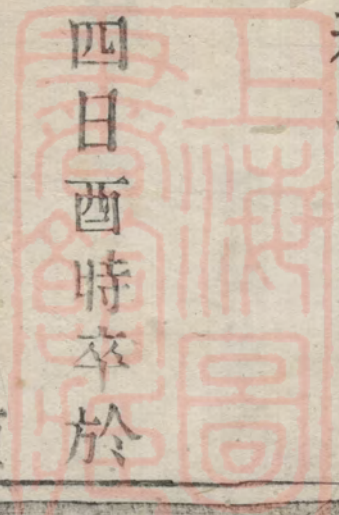 四日酉時卒於
上海圖
書館藏